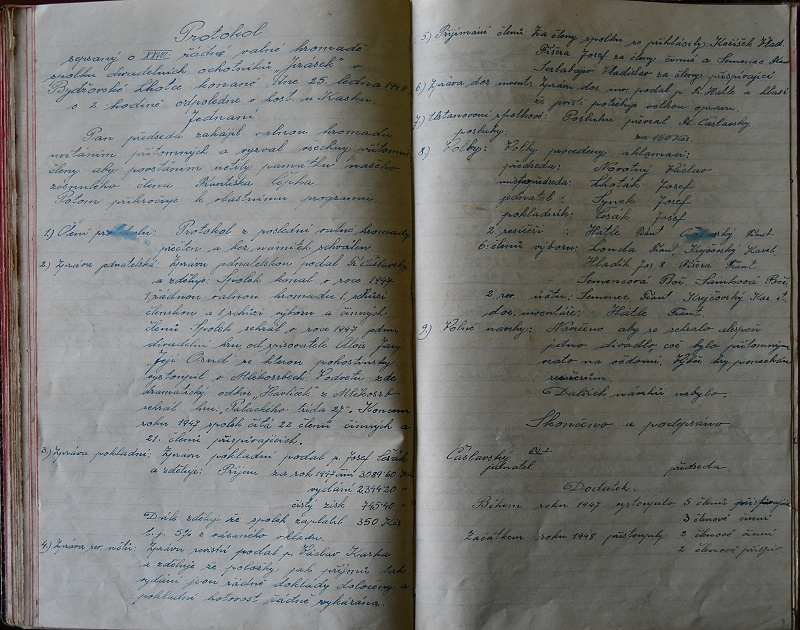 Protokol
sepsaný o XXVII. řádné valné hromadě
spolku divadelních ochotníků „Jirásek" v
Bydžovské Lhotce konané dne 25. ledna 1948
o 2 hodině odpoledne v host. u Karbu
Jednání
Pan předseda zahájil valnou hromadu
uvítáním přítomných a vyzval všechny přítomné
členy aby povstáním uctily památku našeho
zesnulého člena Františka
Potom přikročeno k vlastnímu programu
1.) Čtení protokolu: Protokol z poslední valné hromady
přečten a bez námitek schválen
2.) Zpráva jednatelská: Zprávu jednatelskou podal Fr. Čáslavský
a zděluje: Spolek konal v roce 1947
1 řádnou valnou hromadu 1 schůzi
členskou a 1 schůzi výboru a činných
členů. Spolek sehrál v roce 1947 jednu
divadelní hru od spisovatele
Její Osud se kterou pohostinsky
vystoupil v Mlékosrbech. Podobně zde
dramatický odbor „Havlíček" z Mlékosrb
sehrál hru „Palackého třída 27". Koncem
roku 1947 spolek čítá 22 členů činných a
21. členů přispívajících.
3.) Zpráva pokladní: Zprávu pokladní podal p. Josef Cesák
a zděluje: Příjem za rok 1947 činí 3089·60 Kčs
vydání 2344·20 "
čistý zisk 745·40 "
Dále zděluje že spolek zaplatil 350 Kčs
t.j. 5% z vázaného vkladu.
4.) Zpráva rev. účtů: Zprávu revisní podal p. Václav Karba
a zděluje že položky jak příjmů tak
vydání jsou řádně doklady doloženy a
pokladní hotovost řádně vykázána.
5.) Přijímání členů: Za členy spolku se přihlásily: Košíšek Vlad.
Pišera Josef za členy činné a Semenec
Vladislav za členy přispívající
6.) Zpráva doz. invent.: Zprávu doz. inv. podal p. Fr. Hátle a hlásí
že jeviště potřebuje velkou opravu.
7.) Ustanovení spolkové: Posluhu převzal Fr. Čáslavský
posluhy: za 160 Kčs.
8.) Volby: Volby provedeny aklamací:
předseda: Novotný Václav
místopředseda: Lhoták Josef
jednatel: Synek Josef
pokladník: Cesák Josef
2 režiséři: Hátle Frant. Frant.
6. členů výboru: Londa Frant. Krejčovský Karel
Hladík Jos. Pišera Frant.
Semencová Bož. Samková Bož.
2. rev. účtů: Semenec Frant. Krejčovský Kar. st.
doz. inventáře: Hátle Frant.
9.) Volné návrhy: Navrženo aby se sehrálo alespoň
jedno divadlo, což bylo přítomnými
vzato na vědomí. Výběr hry ponechán
režisérům.
Dalších návrhů nebylo.
Skončeno a podepsáno
Čáslavský Frt.
jednatel předseda
Dodatek.
Během roku 1947 vystoupilo 5 členů přispívajíc.
3 členové činní
Začátkem roku 1948 přistoupily 2 členové činní
2 členové přispív.